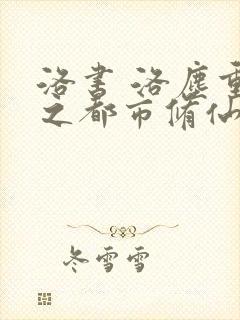 洛书 洛尘重
之都市脩仙
冬雪雪